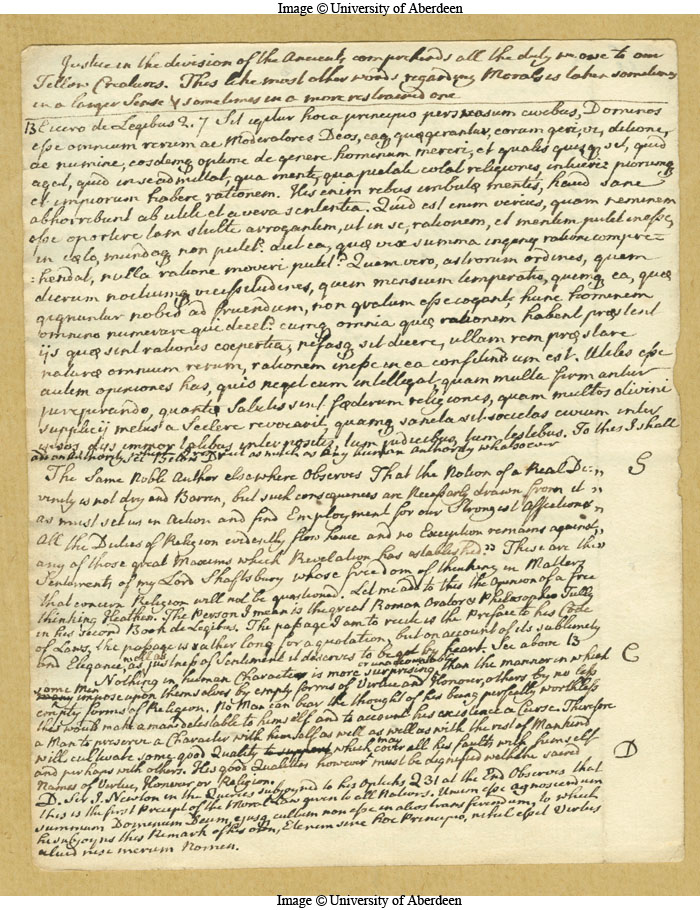 Image © University of Aberdeen
Justice in the division of the Ancients comprehends all the duty we owe to our
Fellow Creatures. This like most other words regarding Morals is taken sometimes
in a larger Sense & sometimes in a more restrained one
B Cicero de Legibus 2. 7 Sit igitur hoc a principio persuasum civibus, Dominos
esse omnium rerum ac Moderatores Deos, eaq quæ gerantur, eorum geri vi, ditione,
ac numine, eosdemq optime de genere hominum mereri; et qualis quisq sit, quid
agat, quid in se admittat, qua mente, qua pietate colat religiones, intueri: piorumq
et impiorum habere rationem. His enim rebus imbutæ mentes, haud sane
abhorrebunt ab utili et a vera sententia. Quid est enim verius, quam neminem
esse oportere tam stulte arrogantem, ut in se, rationem, et mentem putet inesse,
in cælo, mundoq non putet? aut ea, quæ vix summa ingenij ratione compre=
=hendat, nulla ratione moveri putet? Quem vero, astrorum ordines, quem
dierum noctiumq vicissitudines, quem mensium temperatio, quemq ea, quæ
gignuntur nobis ad fruendum, non gratum esse cogant; hunc hominem
omnino numerare qui decet? cumq omnia quæ rationem habent præstent
ijs quæ sint rationis expertia; nefasq sit dicere, ullam rem præstare
naturæ omnium rerum, rationem inesse in ea confitendum est. Utiles esse
autem opiniones has, quis neget cum intellegat, quam multa firmantur
jurejurando, quantæ Salutis sint fœderum religiones, quam multos divini
supplicij metus a Scelere revocarit, quamq sancta sit societas civium inter
ipsos, dijs immortalibus interpositis, tum judicibus, tum testibus. To this I shall
The Same Noble Author elsewhere Observes That the Notion of a Real Di= " S
vinity is not dry and Barren, but such consequences are Necessarly drawn from it "
as must set us in Action and find Employment for our Strongest affections "
All the Duties of Religion evidently flow hence and no Exception remains against "
any of those great Maxims which Revelation has established." These are the
Sentiments of my Lord Shaftsbury whose freedom of thinking in Matters
that concern Religion will not be questioned. Let me add to this the Opinion of a free
thinking Heathen. The Person I mean is the great Roman Orator & Philosopher Tully
in his second Book de Legibus. The passage I am to recite is the Preface to his Code
of Laws, the passage is rather long for a quotation, but on account of its sublimety
and Elegance, as well as justness of Sentiment it deserves to be got by heart. See above B
Nothing in human Character is more surprising or unaccountable than the manner in which C
some Men impose upon themselves by empty forms of Virtue and Honour, others by no less
empty forms of Religion. No Man can bear the thought of his being perfectly worthless
this would make a man detestable to himself and to account his existence a Curse. Therefore
a Man to preserve a Character with himself as well as with the rest of Mankind
will cultivate some good Quality which may cover all his faults with himself D
and perhaps with others. His good Qualities however must be dignifyed with the sacred
Names of Virtue, Honour or Religion.
D. Sir I. Newton in the Queries subjoyned to his Opticks Q 31 at the End Observes that
this is the first Precept of the Moral Law given to all Nations. Unum esse agnoscendum
summum Dominum Deum, ejusq cultum non esse in alios transferendum, to which
he subjoyns this Remark of his own, Etenim sine hoc Principio, nihil esset Virtus
aliud nisi merum Nomen.
Image © University of Aberdeen